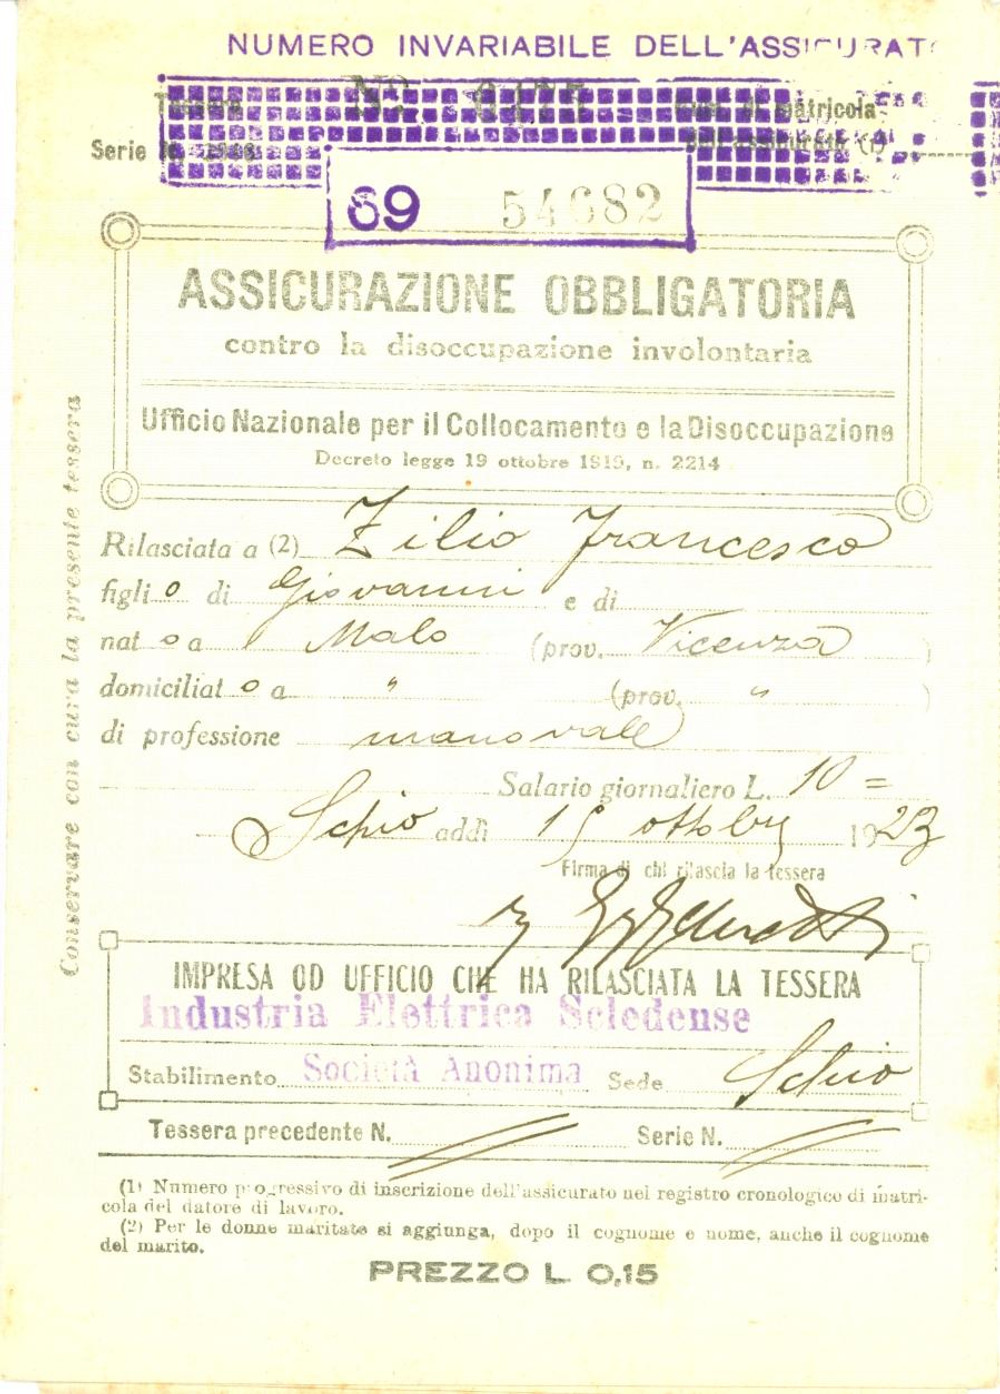 NUMERO INVARIABILE DELL'ASSICURATO
Tessera No di matricola
Serie dell'assicurato (1)
69 54682
ASSICURAZIONE OBBLIGATORIA
contro la disoccupazione involontaria
Ufficio Nazionale per il Collocamento e la Disoccupazione
Decreto legge 19 ottobre 1919, n. 2214
Conservare con cura la presente tessera
Rilasciata a (2) Zilio Francesco
figli o di Giovanni e di
nat o a Malo (prov. Vicenza)
domiciliat o a " (prov. " )
di professione manovale
Salario giornaliero L. 10 =
Schio addì 15 ottobre 1923
Firma di chi rilascia la tessera
IMPRESA OD UFFICIO CHE HA RILASCIATA LA TESSERA
Industria Elettrica Scledense
Stabilimento Società Anonima Sede Schio
Tessera precedente N. Serie N.
(1) Numero progressivo di inscrizione dell'assicurato nel registro cronologico di matri-
cola del datore di lavoro.
(2) Per le donne maritate si aggiunga, dopo il cognome e nome, anche il cognome
del marito.
PREZZO L. 0,15